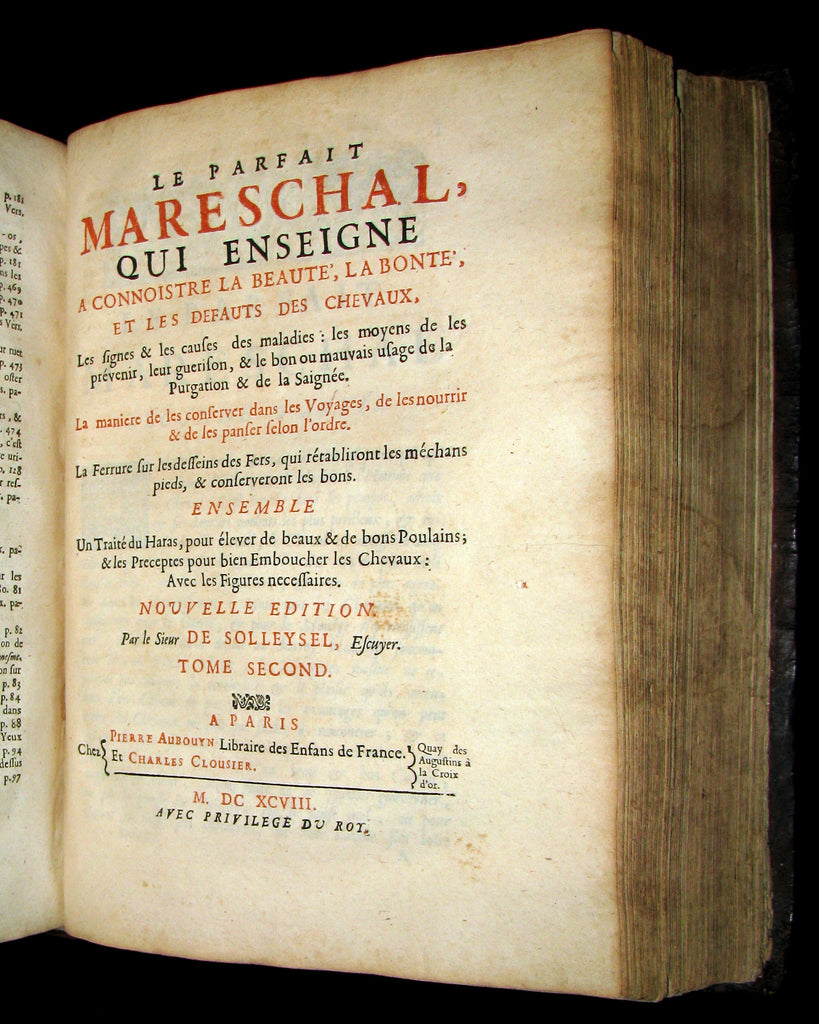 p. 181
Vers.
p. 181
p. 469
p. 470
p. 471
s Vers.
p. 473
oster
s. pa-
474
c'est
e uti-
p. 128
r res-
. pa-
. pa-
r les
80. 81
x. pa-
p. 82
on de
on sur
p. 83
p. 84
dans
p. 88
Yeux
p. 94
dessus
p. 97
LE PARFAIT
MARESCHAL,
QUI ENSEIGNE
A CONNOISTRE LA BEAUTE', LA BONTE',
ET LES DEFAUTS DES CHEVAUX,
Les ſignes & les cauſes des maladies : les moyens de les
prévenir, leur gueriſon, & le bon ou mauvais uſage de la
Purgation & de la Saignée.
La maniere de les conſerver dans les Voyages, de les nourrir
& de les panſer ſelon l'ordre.
La Ferrure ſur les deſſeins des Fers, qui rétabliront les méchans
pieds, & conſerveront les bons.
ENSEMBLE
Un Traité du Haras, pour élever de beaux & de bons Poulains;
& les Preceptes pour bien Emboucher les Chevaux :
Avec les Figures neceſſaires.
NOUVELLE EDITION.
Par le Sieur DE SOLLEYSEL, Eſcuyer.
TOME SECOND.
A PARIS
Chez { PIERRE AUBOUYN Libraire des Enfans de France. } Quay des
Et CHARLES CLOUSIER. Auguſtins à
la Croix
d'or.
M. DC XCVIII.
AVEC PRIVILEGE DU ROY.